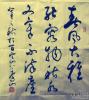 春風大雅
能容物秋水
文章不染塵